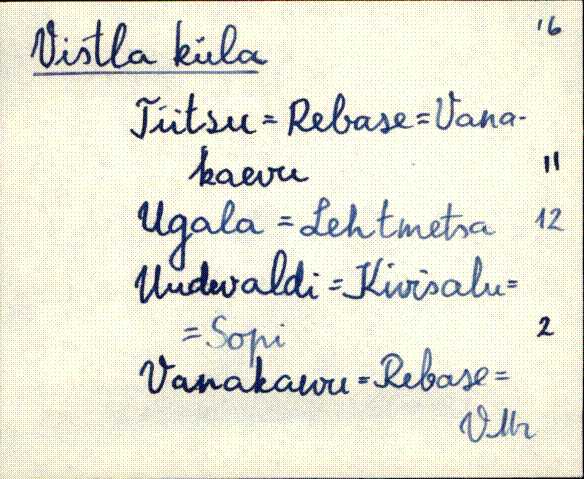 Vistla küla 16
Tiitsu = Rebase = Vana-
kaevu 11
Ugala = Lehtmetsa 12
Uudevaldi = Kivisalu =
= Sopi 2
Vanakaevu = Rebase =